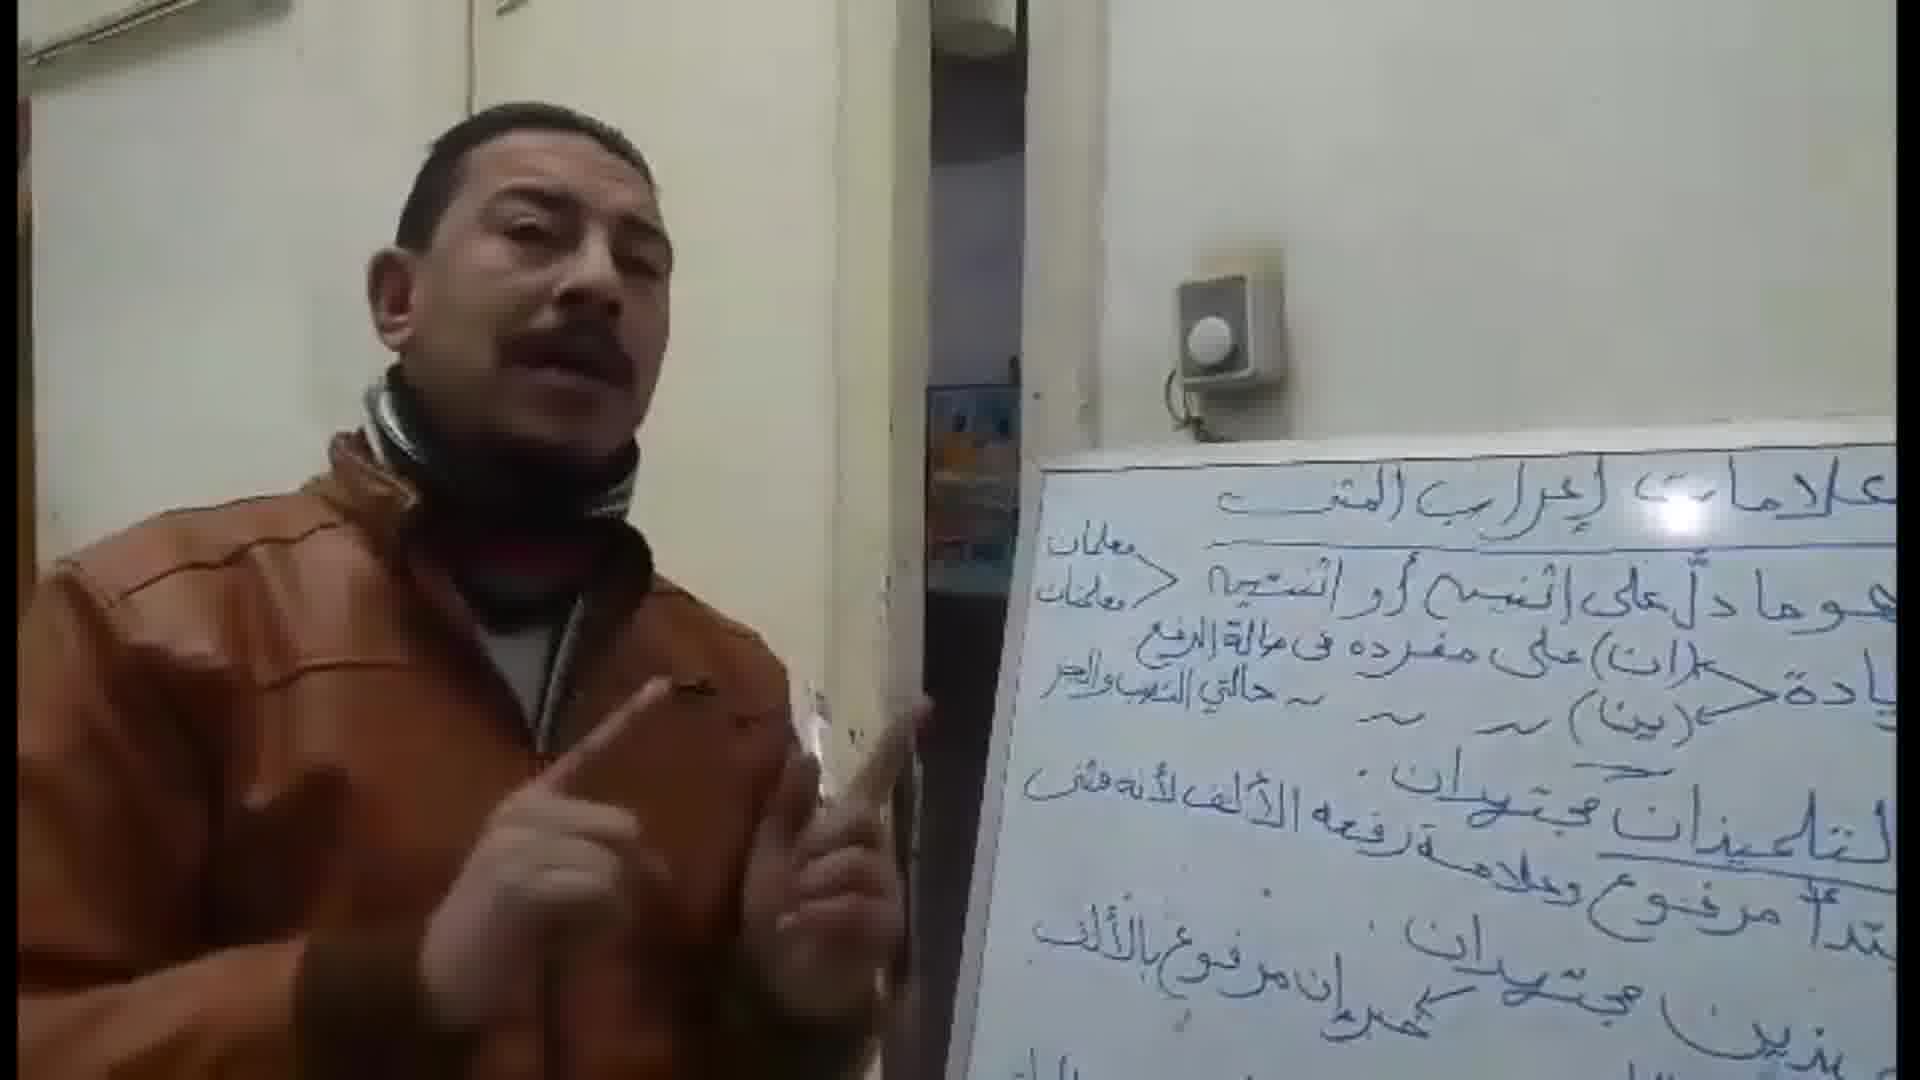 علامات إعراب المثنى
هو ما دلّ على اثنين أو اثنتين
معلمان
معلمتان
يادة (ان) على مفرده فى حالة الرفع
(ين) ~ ~ ~ حالتي النصب والجر
لتلميذان مجتهدان .
بتدأ مرفوع وعلامة رفعه الألف لأنه مثنى
يذين مجتهدان .
خبر إن مرفوع بالألف